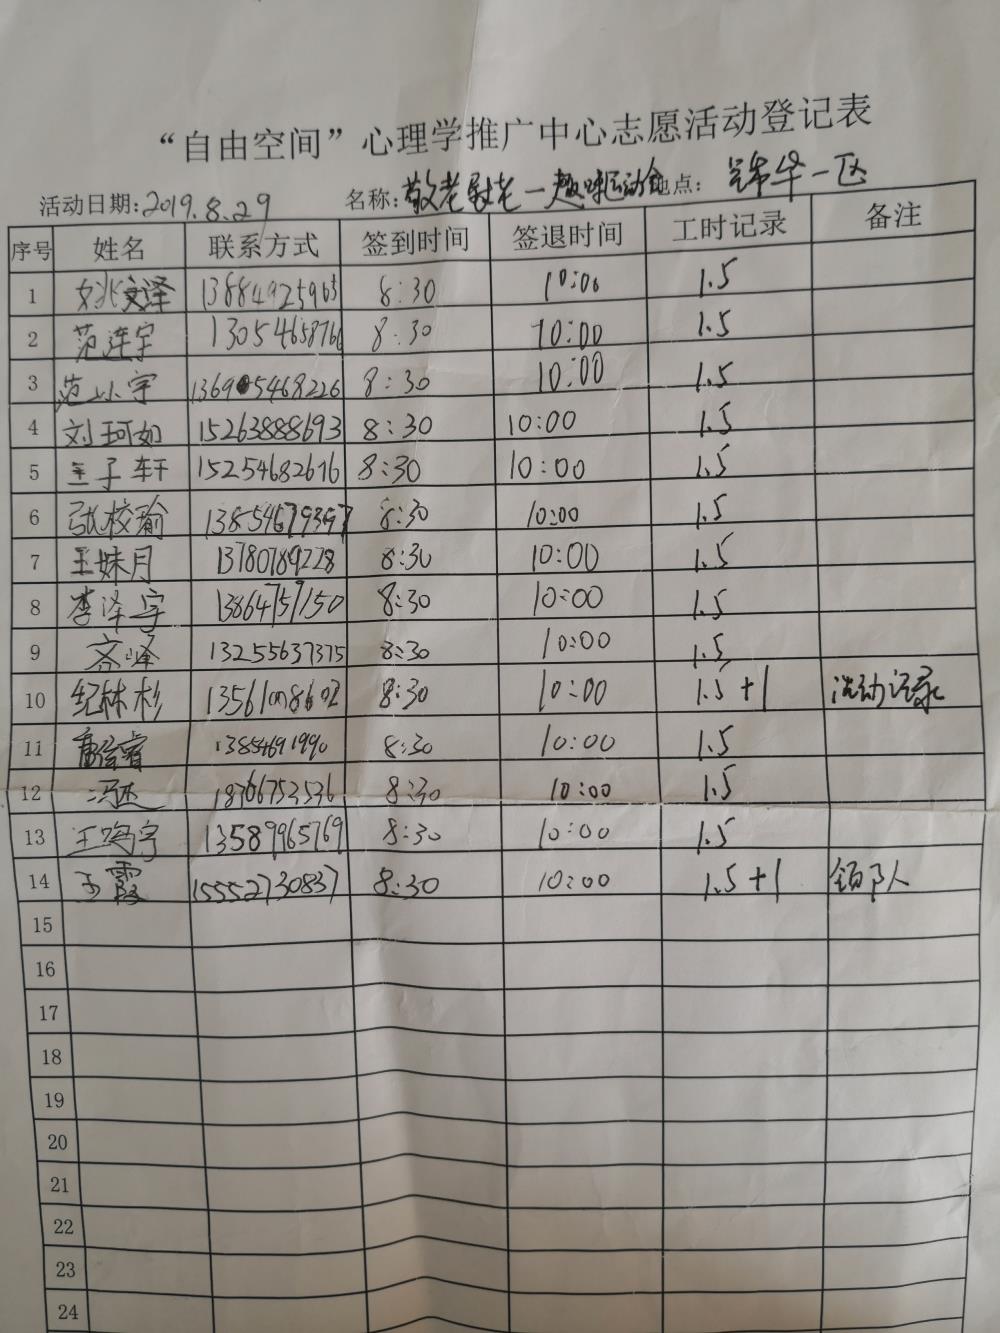 “自由空间”心理学推广中心志愿活动登记表
活动日期:2019.8.29 名称:敬老爱老一趣味运动会 地点:锦华一区
序号 姓名 联系方式 签到时间 签退时间 工时记录 备注
1 姚文泽 13884925965 8:30 10:00 1.5
2 范连宇 13054658766 8:30 10:00 1.5
3 范小宇 13695468226 8:30 10:00 1.5
4 刘珂如 15263888693 8:30 10:00 1.5
5 王子轩 15254682616 8:30 10:00 1.5
6 张校瑜 13854679397 8:30 10:00 1.5
7 王妹月 13780789228 8:30 10:00 1.5
8 李泽宇 13864759150 8:30 10:00 1.5
9 齐峰 13255637375 8:30 10:00 1.5
10 纪林杉 8:30 10:00 1.5+1 活动记录
11 13854691990 8:30 10:00 1.5
12 18766753536 8:30 10:00 1.5
13 王鸣宇 13589965769 8:30 10:00 1.5
14 王霞 15552730837 8:30 10:00 1.5+1 领队人
15
16
17
18
19
20
21
22
23
24